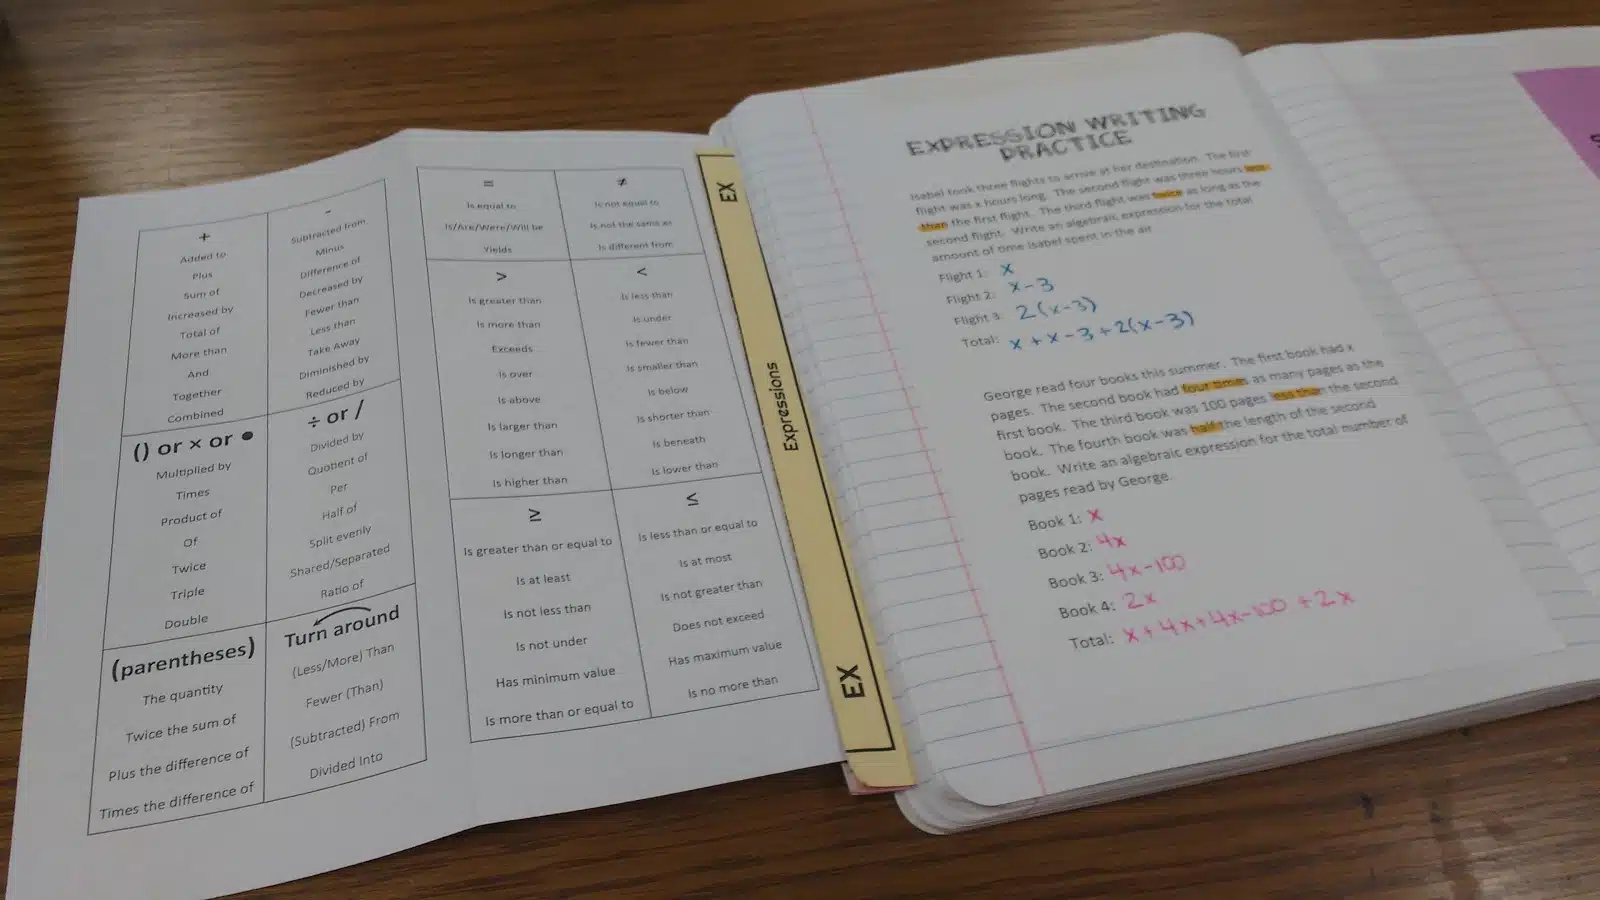 +
Added to
Plus
Sum of
Increased by
Total of
More than
And
Together
Combined
-
Subtracted from
Minus
Difference of
Decreased by
Fewer than
Less than
Take Away
Diminished by
Reduced by
() or × or •
Multiplied by
Times
Product of
Of
Twice
Triple
Double
÷ or /
Divided by
Quotient of
Per
Half of
Split evenly
Shared/Separated
Ratio of
(parentheses)
The quantity
Twice the sum of
Plus the difference of
Times the difference of
Turn around
(Less/More) Than
Fewer (Than)
(Subtracted) From
Divided Into
=
Is equal to
Is/Are/Were/Will be
Yields
≠
Is not equal to
Is not the same as
Is different from
>
Is greater than
Is more than
Exceeds
Is over
Is above
Is larger than
Is longer than
Is higher than
<
Is less than
Is under
Is fewer than
Is smaller than
Is below
Is shorter than
Is beneath
Is lower than
≥
Is greater than or equal to
Is at least
Is not less than
Is not under
Has minimum value
Is more than or equal to
≤
Is less than or equal to
Is at most
Is not greater than
Does not exceed
Has maximum value
Is no more than
EX
Expressions
EX
EXPRESSION WRITING
PRACTICE
Isabel took three flights to arrive at her destination. The first
flight was x hours long. The second flight was three hours less
than the first flight. The third flight was twice as long as the
second flight. Write an algebraic expression for the total
amount of time Isabel spent in the air.
Flight 1: x
Flight 2: x-3
Flight 3: 2(x-3)
Total: x + x - 3 + 2(x-3)
George read four books this summer. The first book had x
pages. The second book had four times as many pages as the
first book. The third book was 100 pages less than the second
book. The fourth book was half the length of the second
book. Write an algebraic expression for the total number of
pages read by George.
Book 1: x
Book 2: 4x
Book 3: 4x-100
Book 4: 2x
Total: x + 4x + 4x-100 + 2x